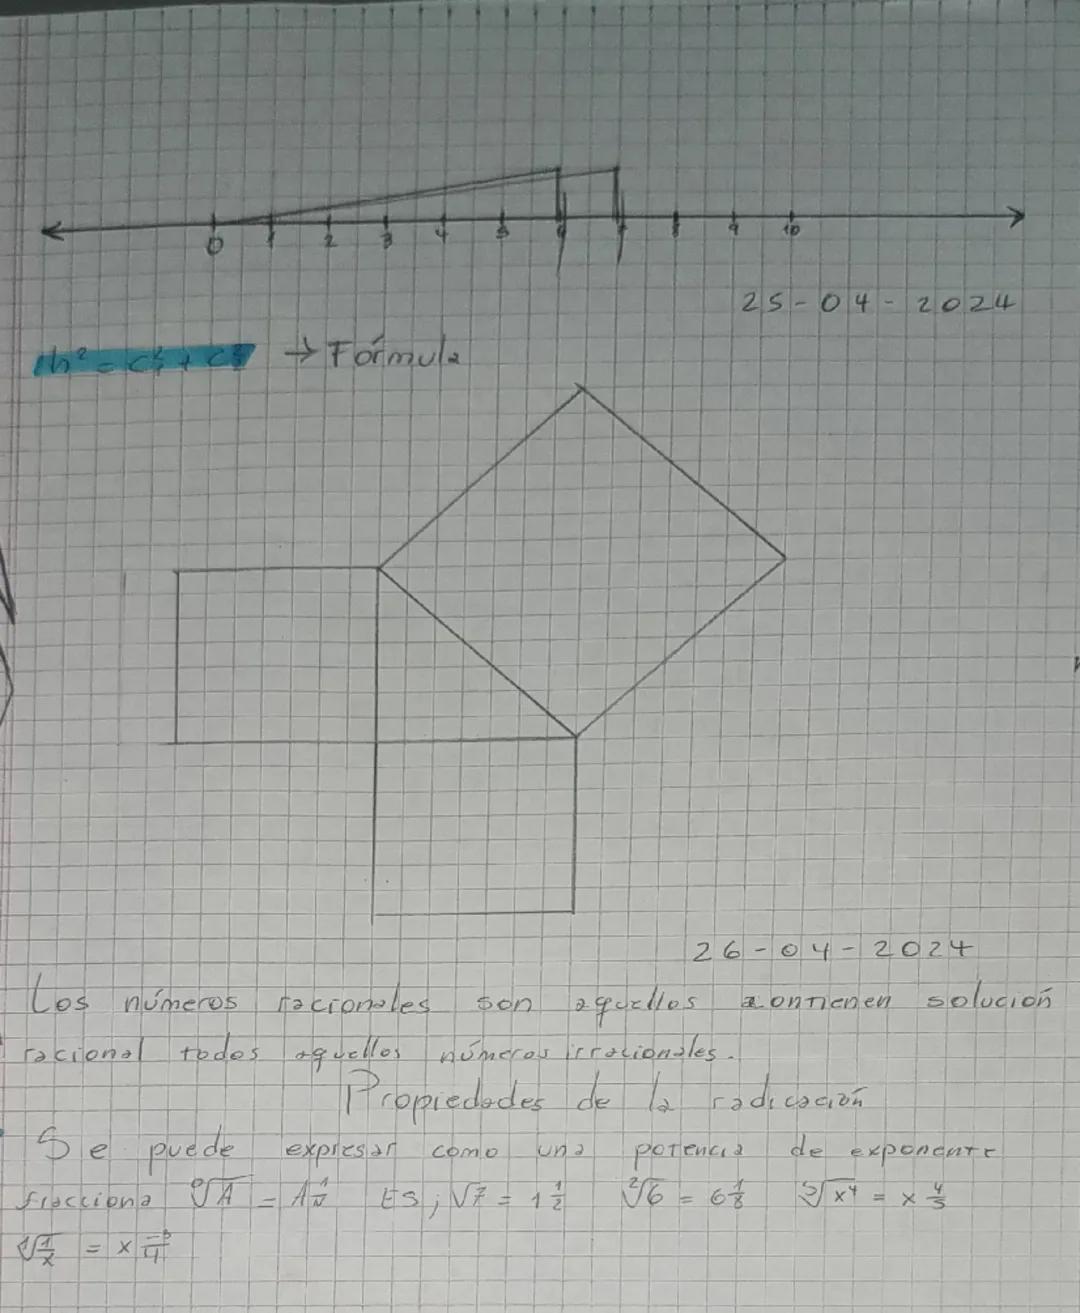 0 1 2 3 4 5 6 7 8 9 10
25-04-2024
h² = c² + c² → Fórmula
26-04-2024
Los números racionales son aquellos contienen solución
racional todos aquellos números irracionales.
Propiedades de la radicación
Se puede expresar como una potencia de exponente
fracciona ES; √7 = 1 1/2 ²√6 = 6 √x⁴ = x
= x